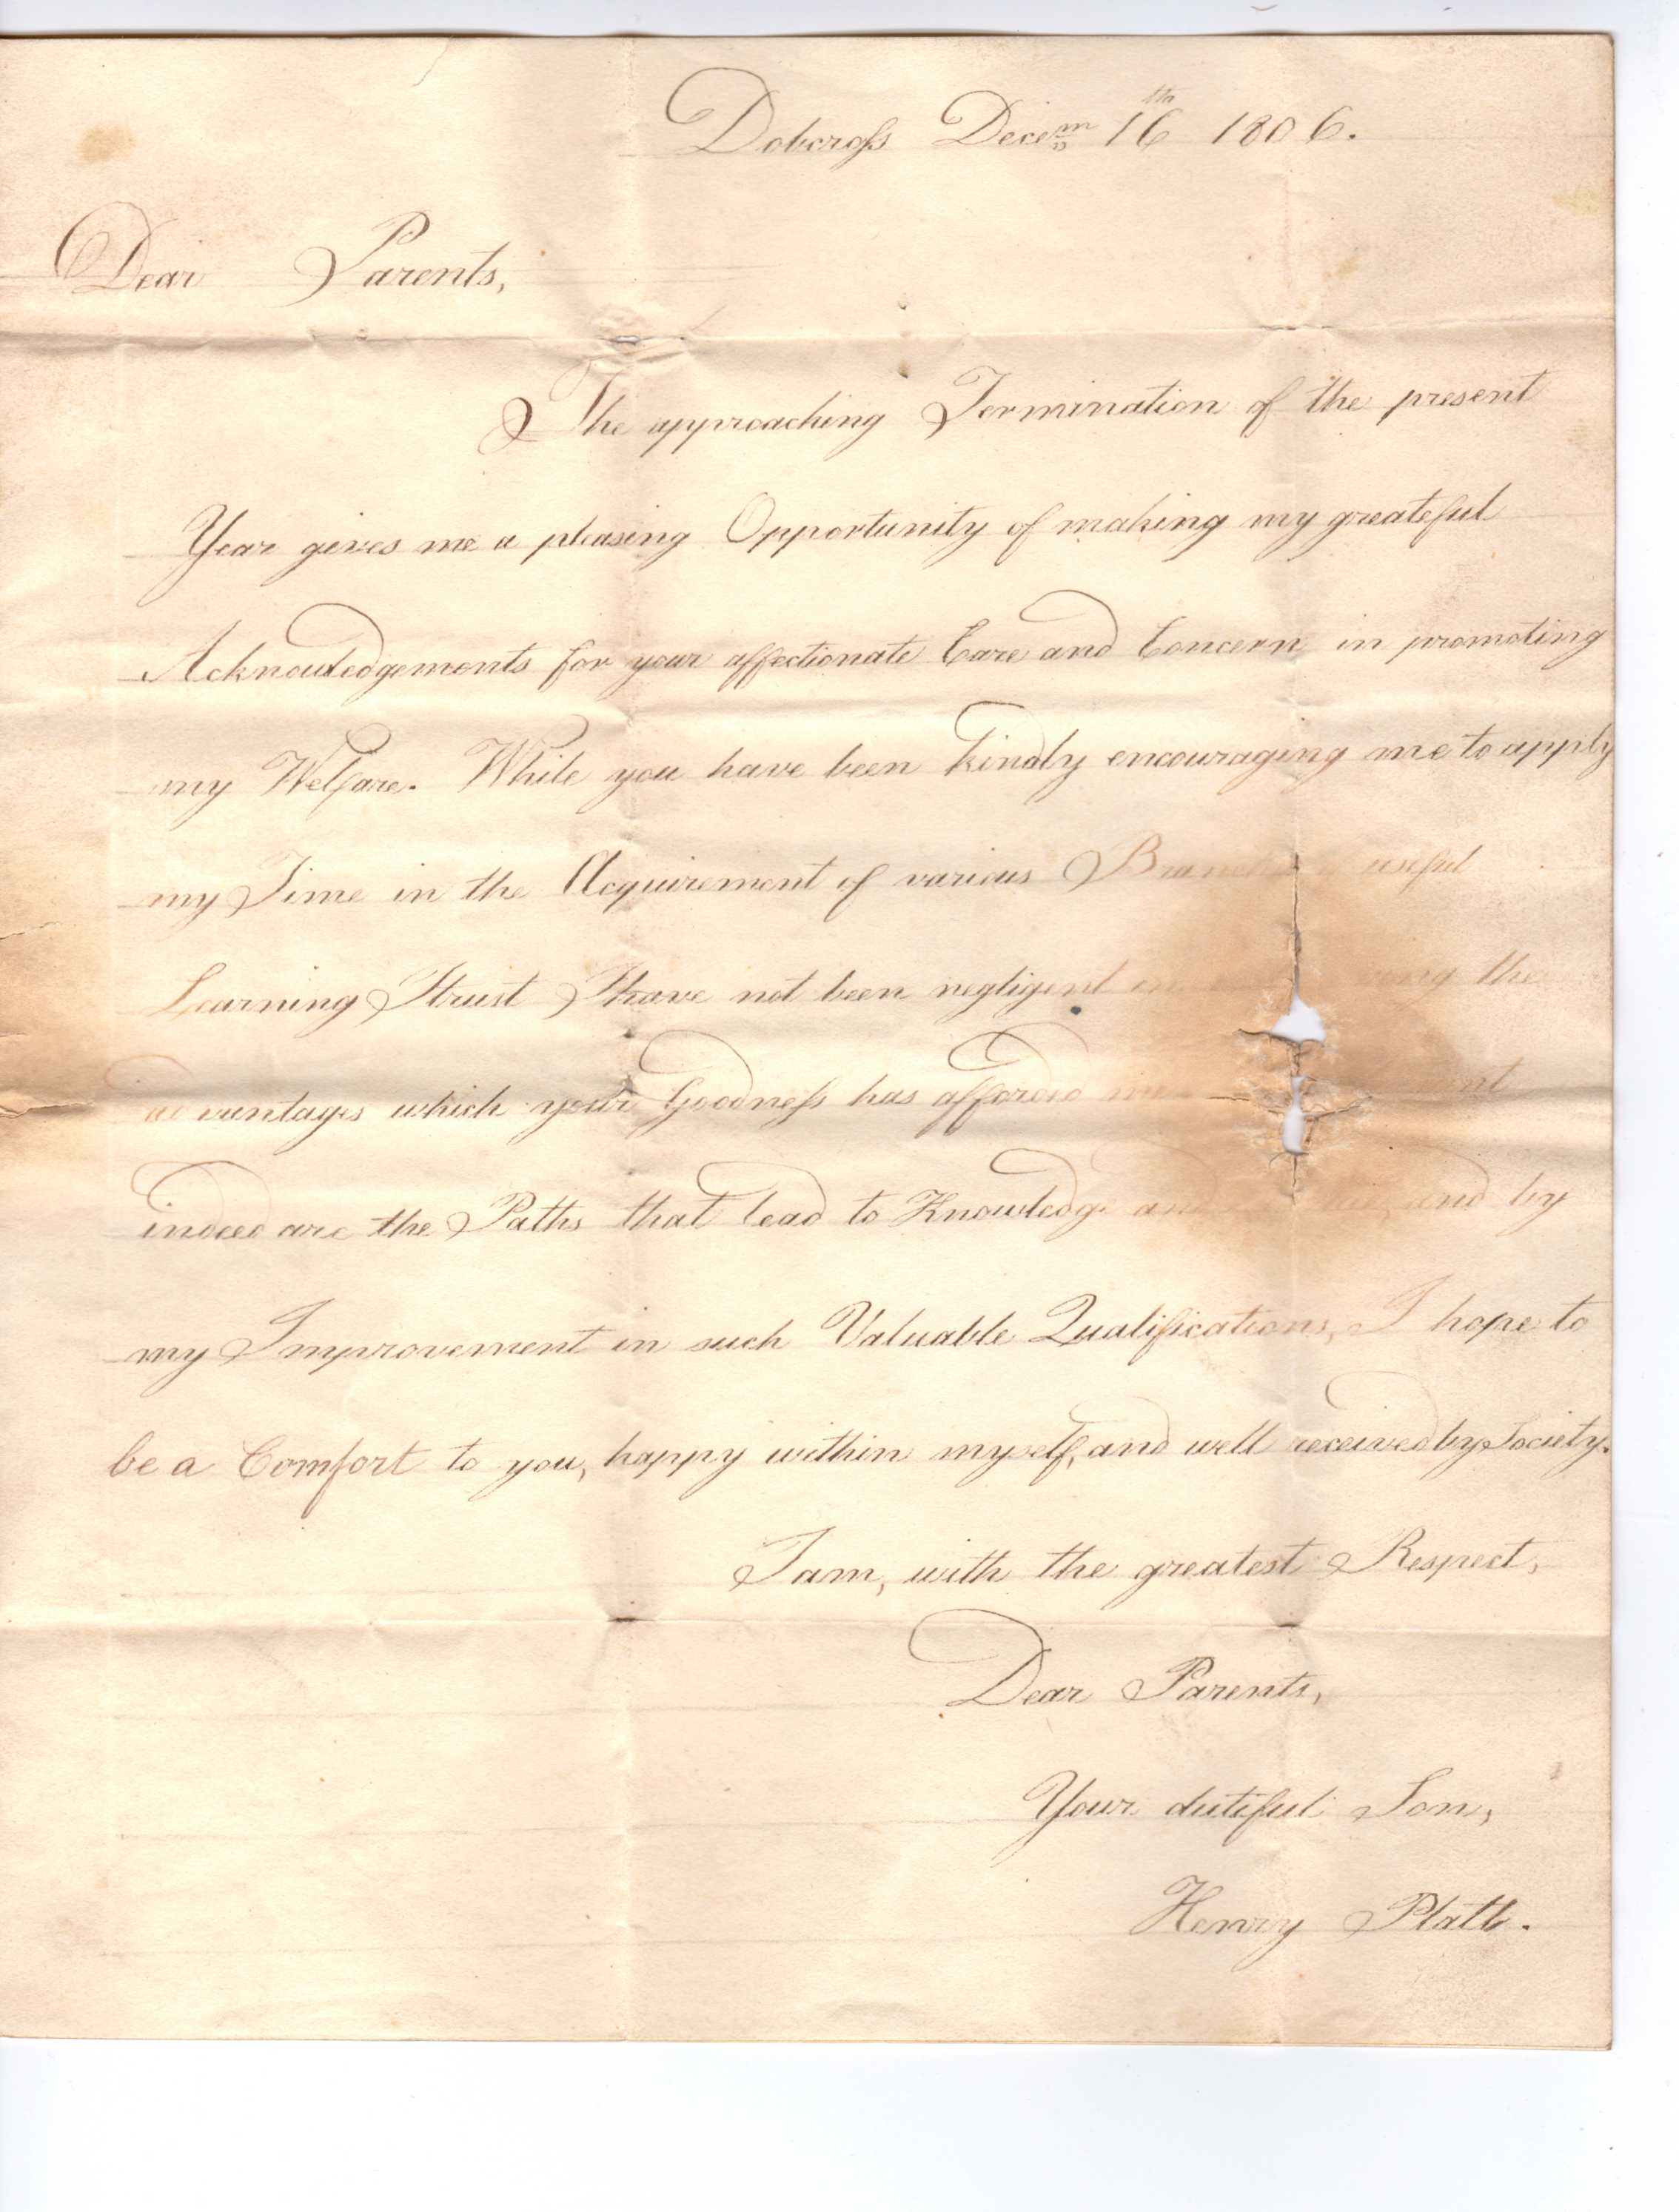 Dobcroſs Decem 16th 1806.
Dear Parents,
The approaching Termination of the present
Year gives me a pleasing Opportunity of making my greateful
Acknowledgements for your affectionate Care and Concern in promoting
my Welfare. While you have been kindly encouraging me to apply
my Time in the Acquirement of various useful
Learning I trust I have not been negligent the
advantages which your Goodneſs has afforded
indeed are the Paths that lead to Knowledge and by
my Improvement in such Valuable Qualifications, I hope to
be a Comfort to you, happy within myself, and well received by Society.
I am, with the greatest Respect,
Dear Parents,
Your dutiful Son,
Henry Platt.